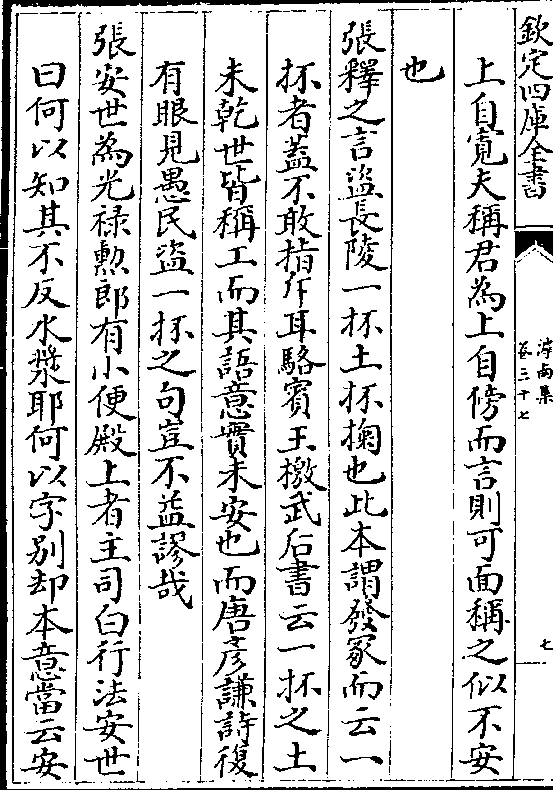 欽定四庫全書
滹南集
卷三十七
七
上自寛夫稱君為上自傍而言則可面稱之似不安
也
張釋之言盜長陵一抔土抔掬也此本謂發冢而云一
抔者蓋不敢指斥耳駱賓王檄武后書云一抔之土
未乾世皆稱工而其語意實未安也而唐彦謙詩復
有眼見愚民盜一抔之句豈不益謬哉
張安世為光禄勲郎有小便殿上者主司白行法安世
曰何以知其不反水漿耶何以字别却本意當云安